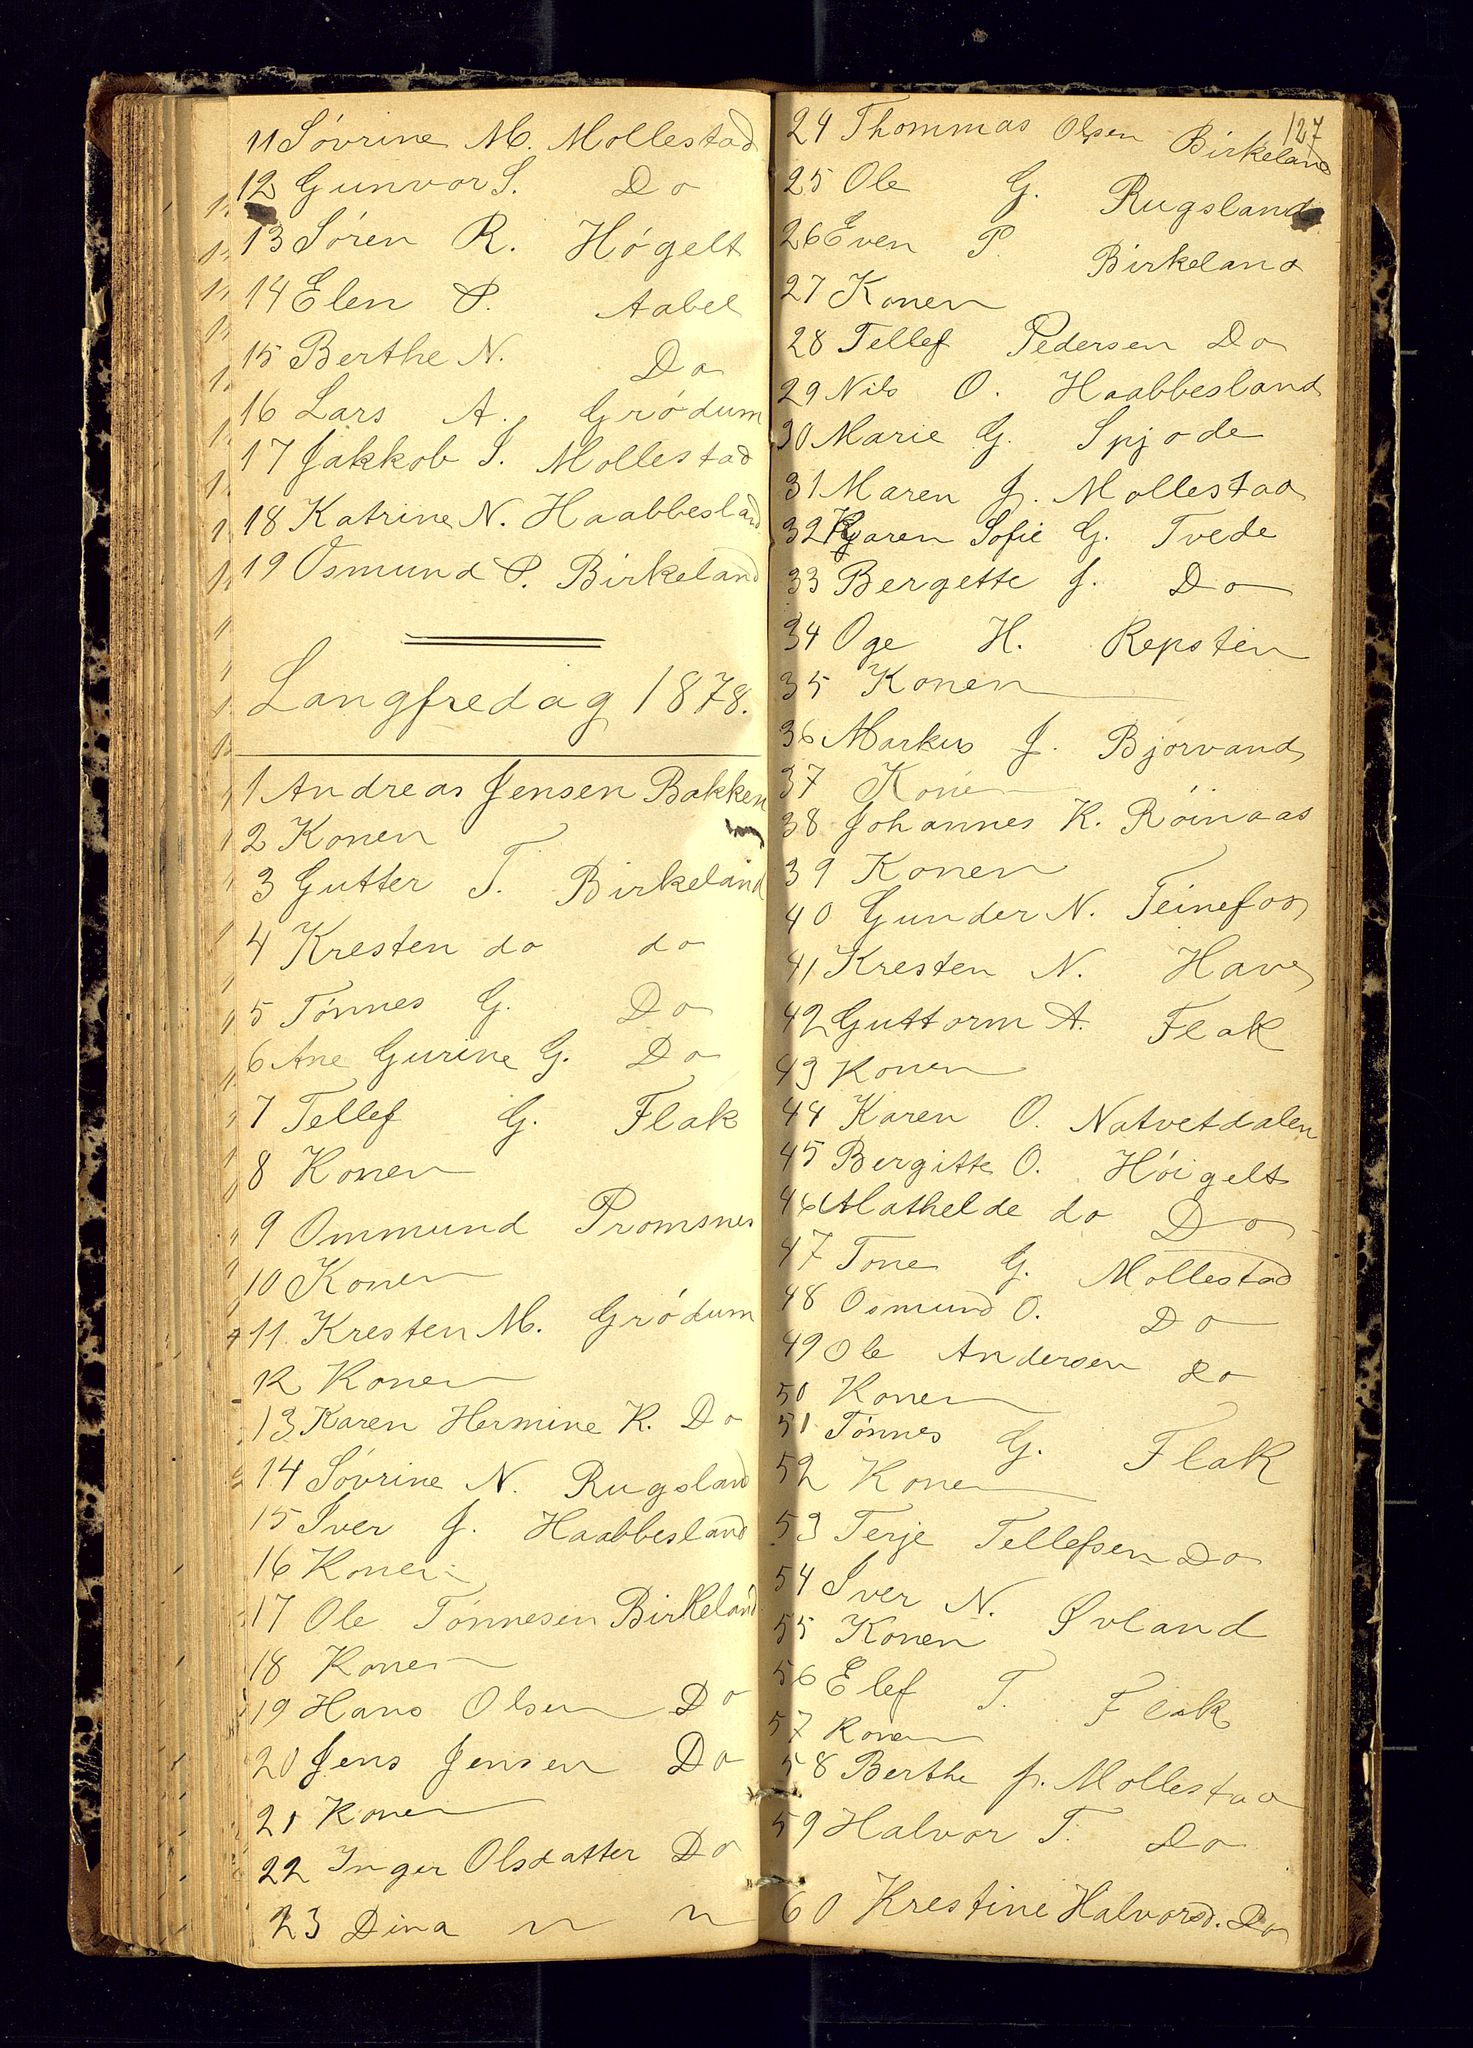 11 Søvrine M. Mollestad
12 Gunvor S. Do
13 Søren R. Høgelt
14 Elen P. Aabel
15 Berthe N. Do
16 Lars A. Grødum
17 Jakkob S. Mollestad
18 Katrine N. Haabbesland
19 Osmund P. Birkeland
Langfredag 1878.
1 Andreas Jensen Bakken
2 Konen
3 Gutter T. Birkeland
4 Kresten do do
5 Tønnes G. Do
6 Ane Gurine G. Do
7 Tellef G. Flak
8 Konen
9 Ommund Promsnes
10 Konen
11 Kresten M. Grødum
12 Konen
13 Karen Hermine K. Do
14 Søvrine N. Rugsland
15 Iver J. Haabbesland
16 Konen
17 Ole Tønnesen Birkeland
18 Konen
19 Hans Olsen Do
20 Jens Jensen Do
21 Konen
22 Inger Olsdatter Do
23 Dina " "
127
24 Thommas Olsen Birkeland
25 Ole G. Rugsland
26 Even P. Birkeland
27 Konen
28 Tellef Pedersen Do
29 Nils O. Haabbesland
30 Marie G. Spjode
31 Maren J. Mollestad
32 Karen Sofie G. Tvede
33 Bergette J. Do
34 Oge H. Repsten
35 Konen
36 Markus J. Bjorvand
37 Konen
38 Johannes K. Røinaas
39 Konen
40 Gunder N. Teinefos
41 Kresten N. Have
42 Guttorm A. Flak
43 Konen
44 Karen O. Natvetdalen
45 Bergitte O. Høigelt
46 Mathelde do Do
47 Tone G. Mollestad
48 Osmund O. Do
49 Ole Andersen do
50 Konen
51 Tønnes G. Flak
52 Konen
53 Terje Tellefsen Do
54 Iver N. Øvland
55 Konen
56 Elef T. Flak
57 Konen
58 Berthe J. Mollestad
59 Halvor T. Do
60 Krestine Halvorsd. Do